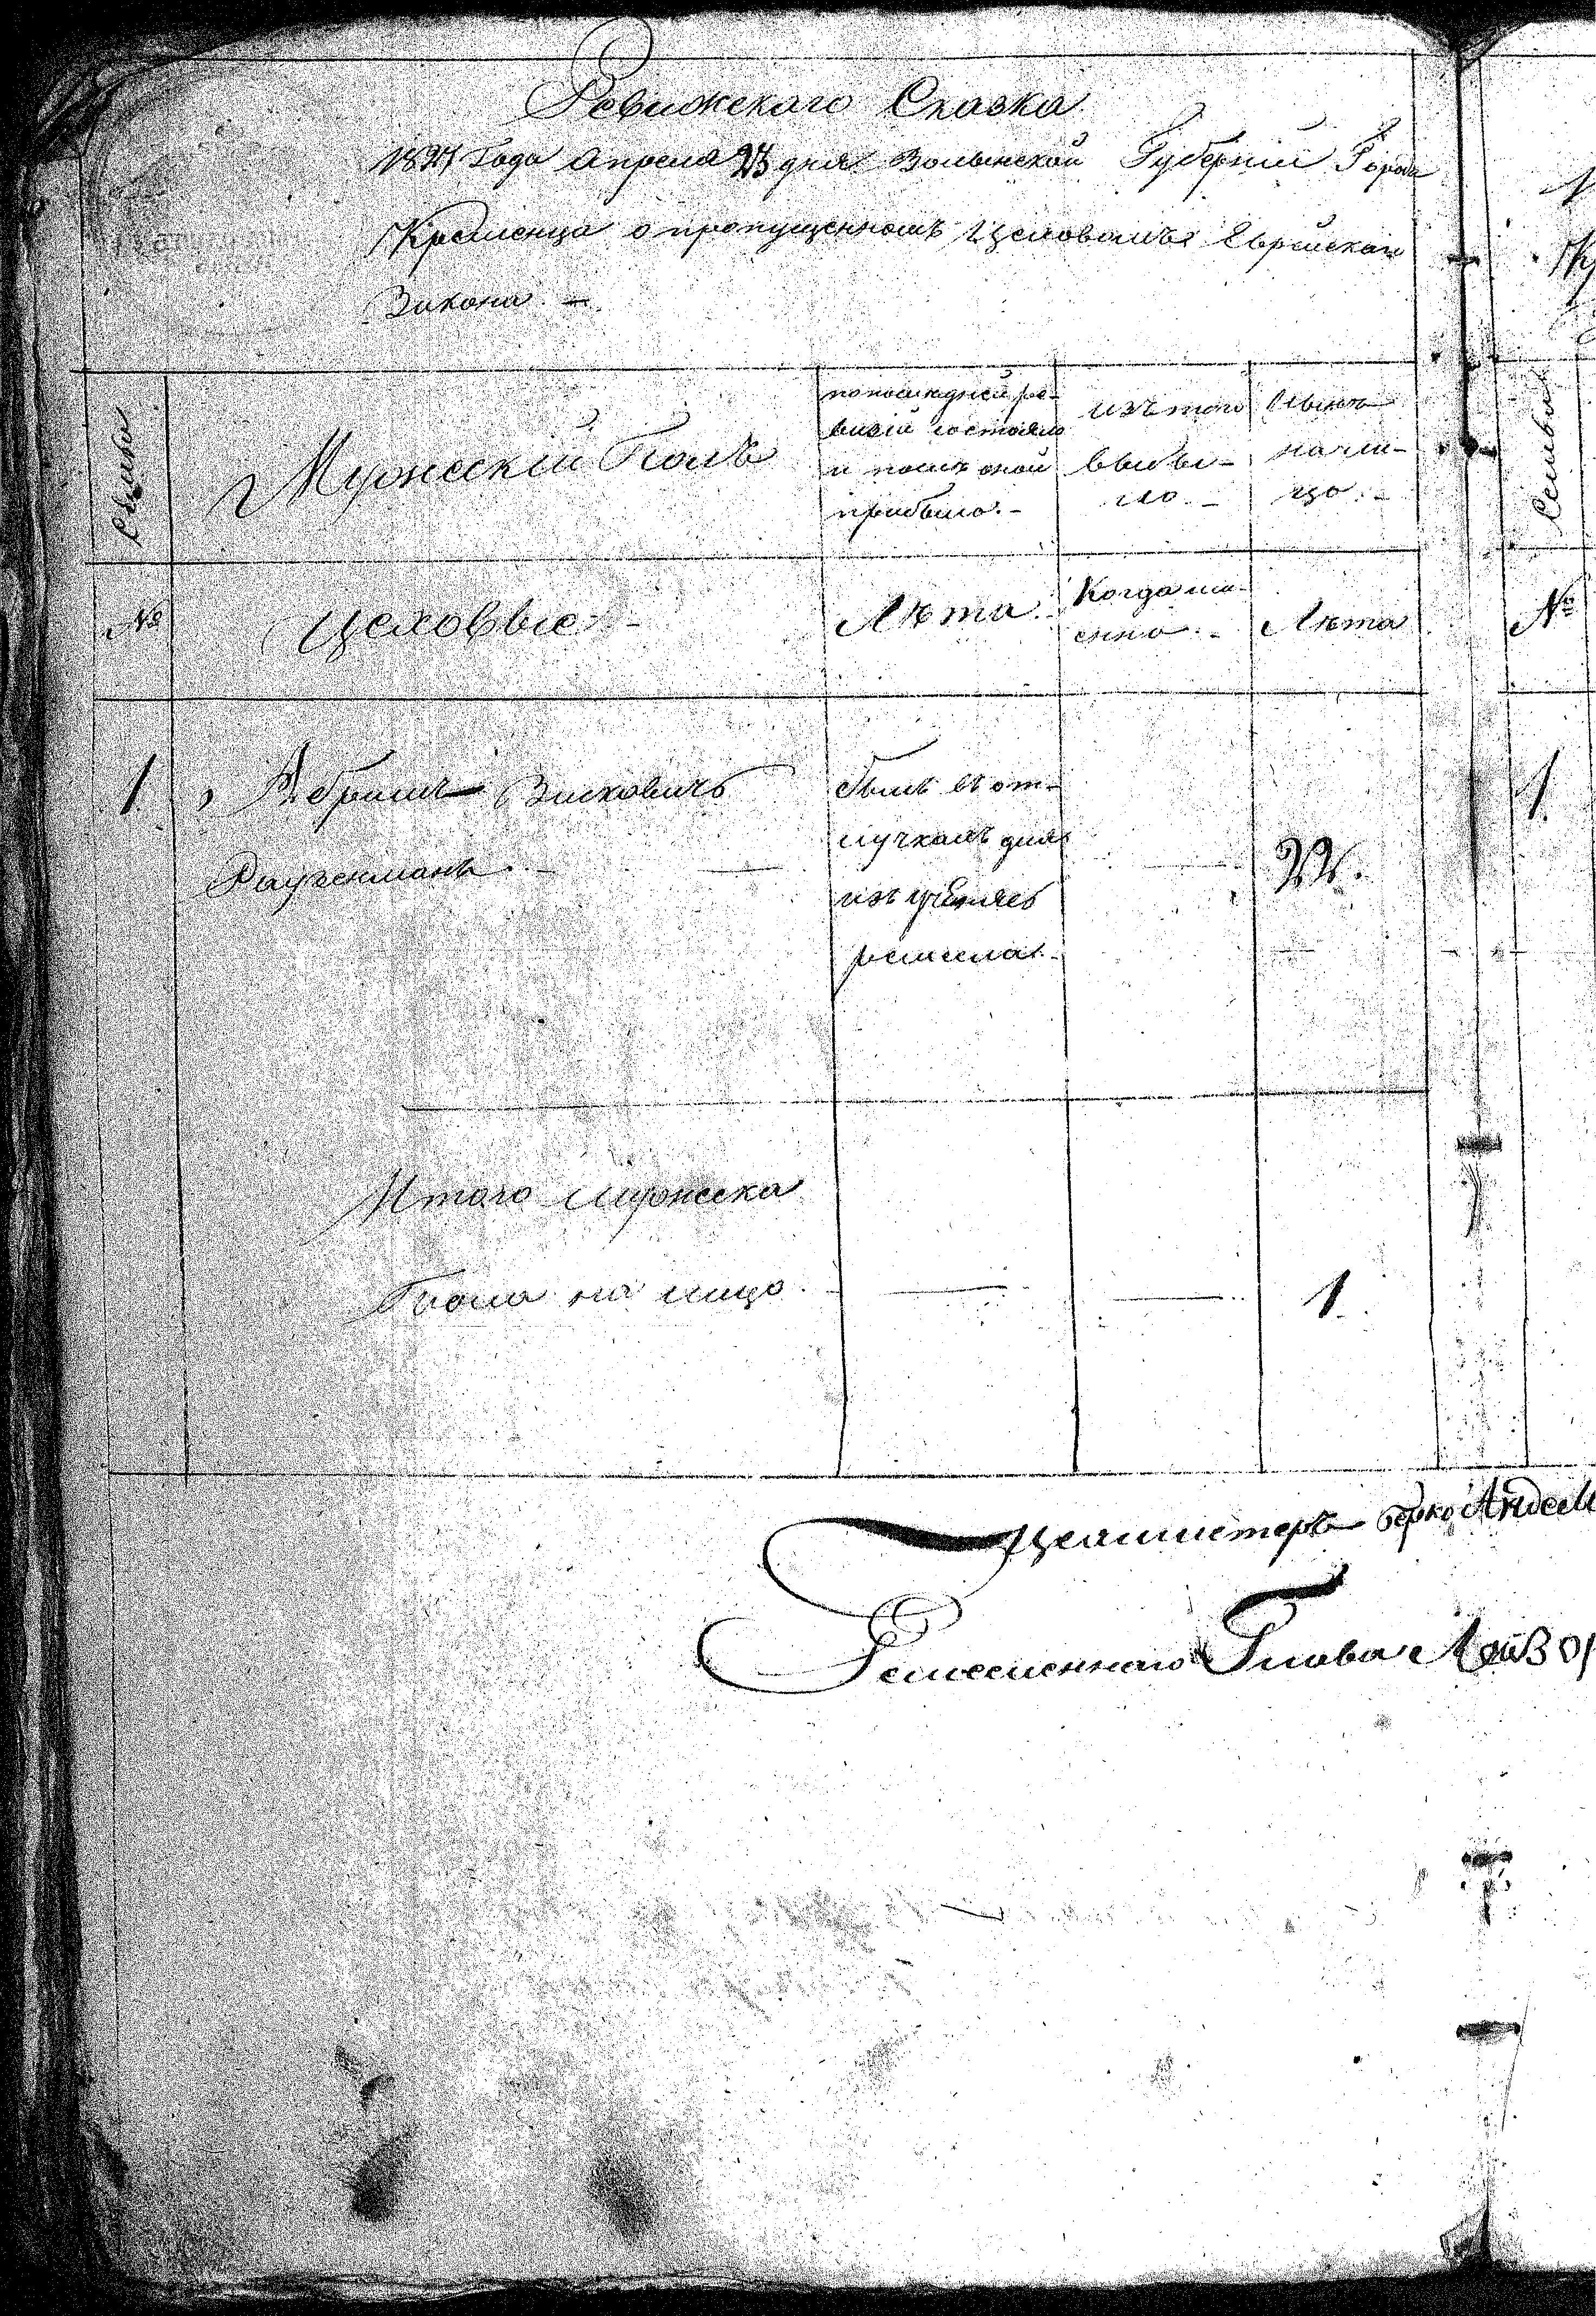 Ревижскаго Сказка
Года Апреля дня Волынской Губерніи Города
Кременца о пропущенномъ Цеховомъ Еврейскаго
Закона. —
Семьи
Мужескій Полъ
по последней ре-
визіи состояло
и послѣ оной
прибыло. -
изъ того
выбы-
ло. -
Нынѣ
на ли-
цо. -
Семьи
№
Цеховые
Лѣта. -
Когда им-
енно. -
Лѣта
№
1
Абрамъ Зисковичъ
былъ въ от-
1
лучкахъ для
изученія
ремесла. -
22.
Итого мужеска
Пола на лицо
1
Цехмистеръ Берко
Ремесленнаго Глава